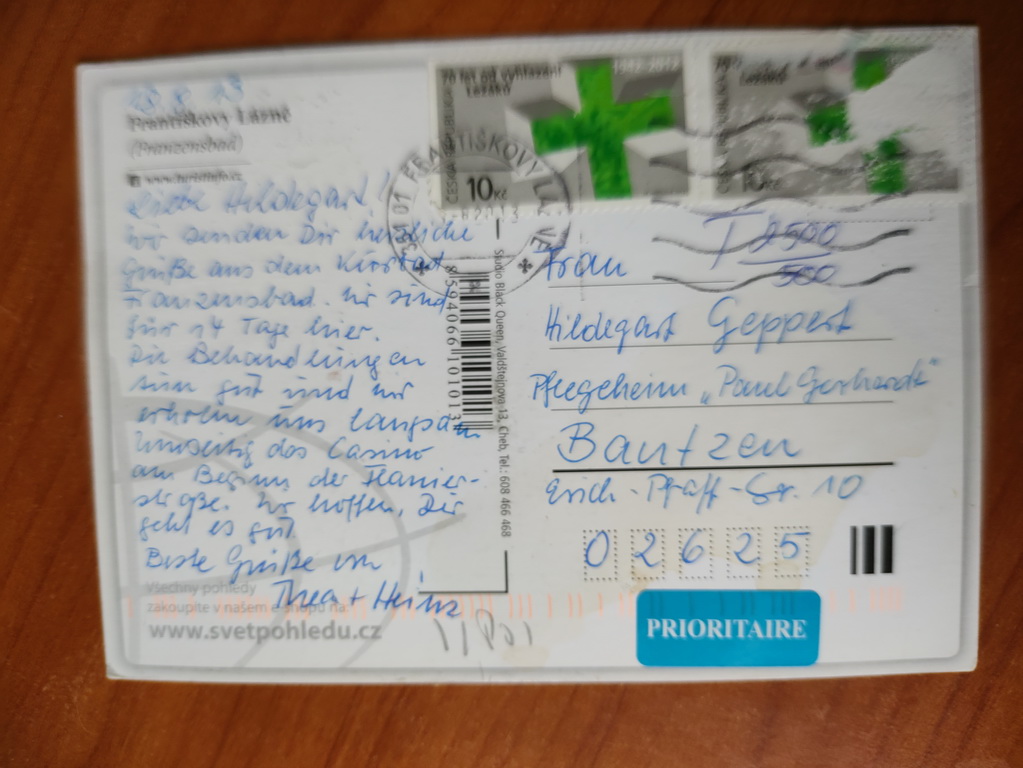 23.8.13
Františkovy Lázně
(Franzensbad)
Liebe Hildegart!
wir senden Dir herzliche
Grüße aus dem Kurbad
Franzensbad. Wir sind
für 14 Tage hier.
Die Behandlungen
sinn gut und wir
erholen uns langsam
das Casino
am Beginn der Flanier-
straße. Wir hoffen, Dir
geht es gut.
Beste Grüße von
Thea + Heinz
Všechny pohledy
zakoupíte v našem e-shopu na:
www.svetpohledu.cz
8 594066 101013
Studio Black Queen, Valdštejnova 13, Cheb, Tel.: 608 466 468
70 let od vyhlazení
Ležáků
1942-2012
ČESKÁ REPUBLIKA
10 Kč
Ležáků
10 Kč
351 01 FRANTIŠKOVY LÁZNĚ
T 2500
500
Frau
Hildegart Geppert
Pflegeheim „Paul Gerhardt"
Bautzen
Erich-Pfaff-Str. 10
0 2 6 2 5
PRIORITAIRE